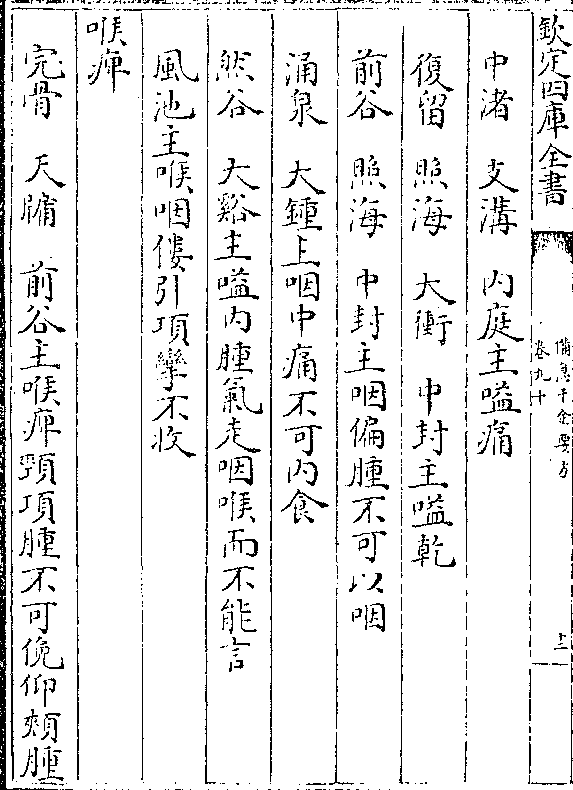 欽定四庫全書
備急千金要方
卷九十
十三
中渚　支溝　内庭主嗌痛
復留　照海　大衝　中封主嗌乾
前谷　照海　中封主咽偏腫不可以咽
涌泉　大鍾主咽中痛不可内食
然谷　大谿主嗌内腫氣走咽喉而不能言
風池主喉咽僂引項攣不收
喉痺
完骨　天牖　前谷主喉痺頸項腫不可俛仰頰腫